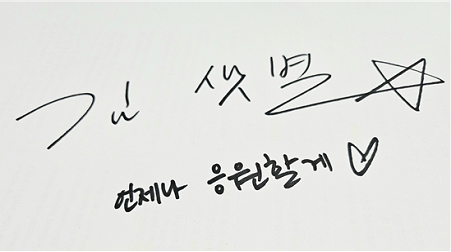 김 샛별 ☆
언제나 응원할게 ♡